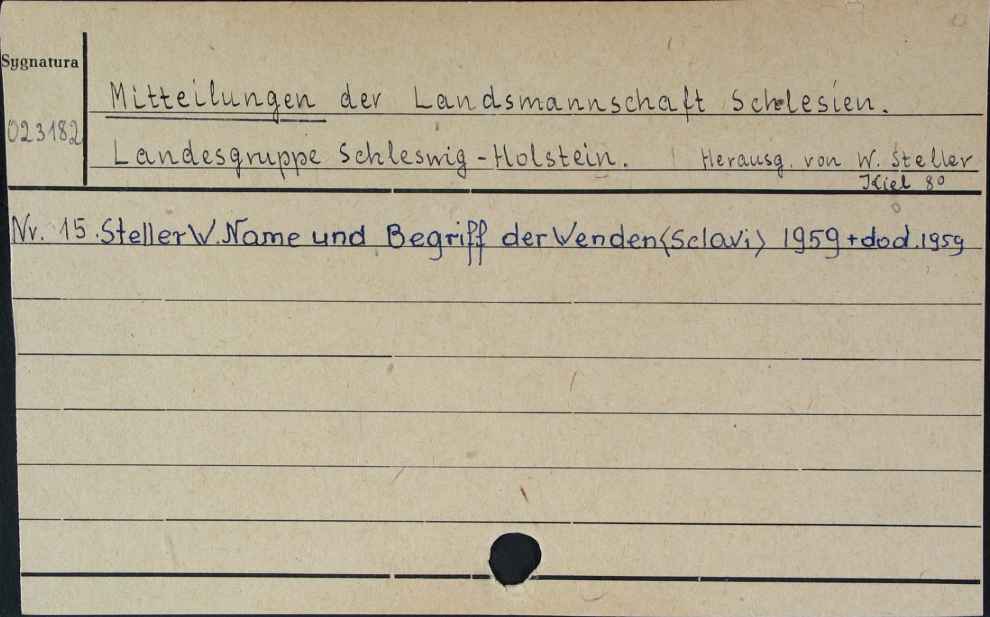 Sygnatura
Mitteilungen der Landsmannschaft Schlesien.
023182
Landesgruppe Schleswig-Holstein. Herausg. von W. Steller
Kiel 8°
Nr. 15. Steller W. Name und Begriff der Wenden (Sclavi) 1959 + dod. 1959